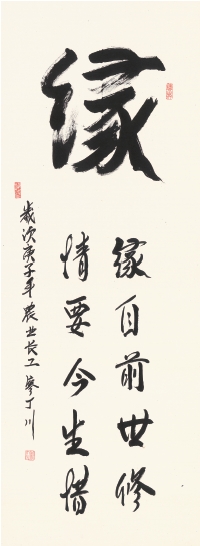 缘
缘自前世修
情要今生惜
岁次庚子年农业长工廖丁川